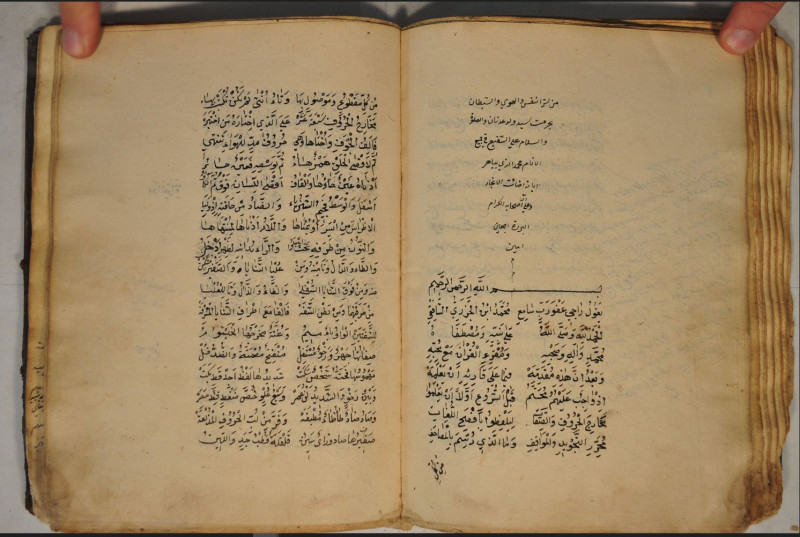 من لة النفس والهوى والشيطان
بحرمت سيد ولد عدنان والصلاة
والسلام على الشفيع في
الانام محمد الذي
وعلى اصحابه الكرام
البررة اجمعين
امين
م
بسم الله الرحمن الرحيم
يقول راجي عفو رب سامع محمد ابن الجزري الشافعي
الحمد لله وصلى الله على نبيه ومصطفاه
محمد واله وصحبه ومقرئ القران مع محبه
وبعد ان هذه مقدمة فيما على قارئه ان يعلمه
اذ واجب عليهم محتم قبل الشروع اولا ان يعلموا
مخارج الحروف والصفات ليلفظوا بافصح اللغات
محرر التجويد والمواقف وما الذي رسم في المصاحف
من كل مقطوع وموصول بها وتاء انثى لم تكن تكتب بهاء
مخارج الحروف سبعة عشر على الذي يختاره من اختبر
فالف الجوف واختاها وهي حروف مد للهواء تنتهي
ثم لاقصى الحلق همز هاء ثم لوسطه فعين حاء
ادناه غين خاؤها والقاف اقصى اللسان فوق ثم الكاف
اسفل والوسط فجيم الشين يا والضاد من حافته اذ وليا
الاضراس من ايسر او يمناها واللام ادناها لمنتهاها
والنون من طرفه تحت اجعلوا والراء يدانيه لظهر ادخل
والطاء والدال وتا منه ومن عليا الثنايا والصفير مستكن
منه ومن فوق الثنايا السفلى والظاء والذال وثا للعليا
من طرفيهما ومن بطن الشفه فالفا مع اطراف الثنايا المشرفه
للشفتين الواو باء ميم وغنة مخرجها الخيشوم
صفاتها جهر ورخو مستفل منفتح مصمتة والضد قل
مهموسها فحثه شخص سكت شديدها لفظ اجد قط بكت
وبين رخو والشديد لن عمر وسبع علو خص ضغط قظ حصر
وصاد ضاد طاء ظاء مطبقه وفر من لب الحروف المذلقه
صفيرها صاد وزاي سين قلقلة قطب جد واللين